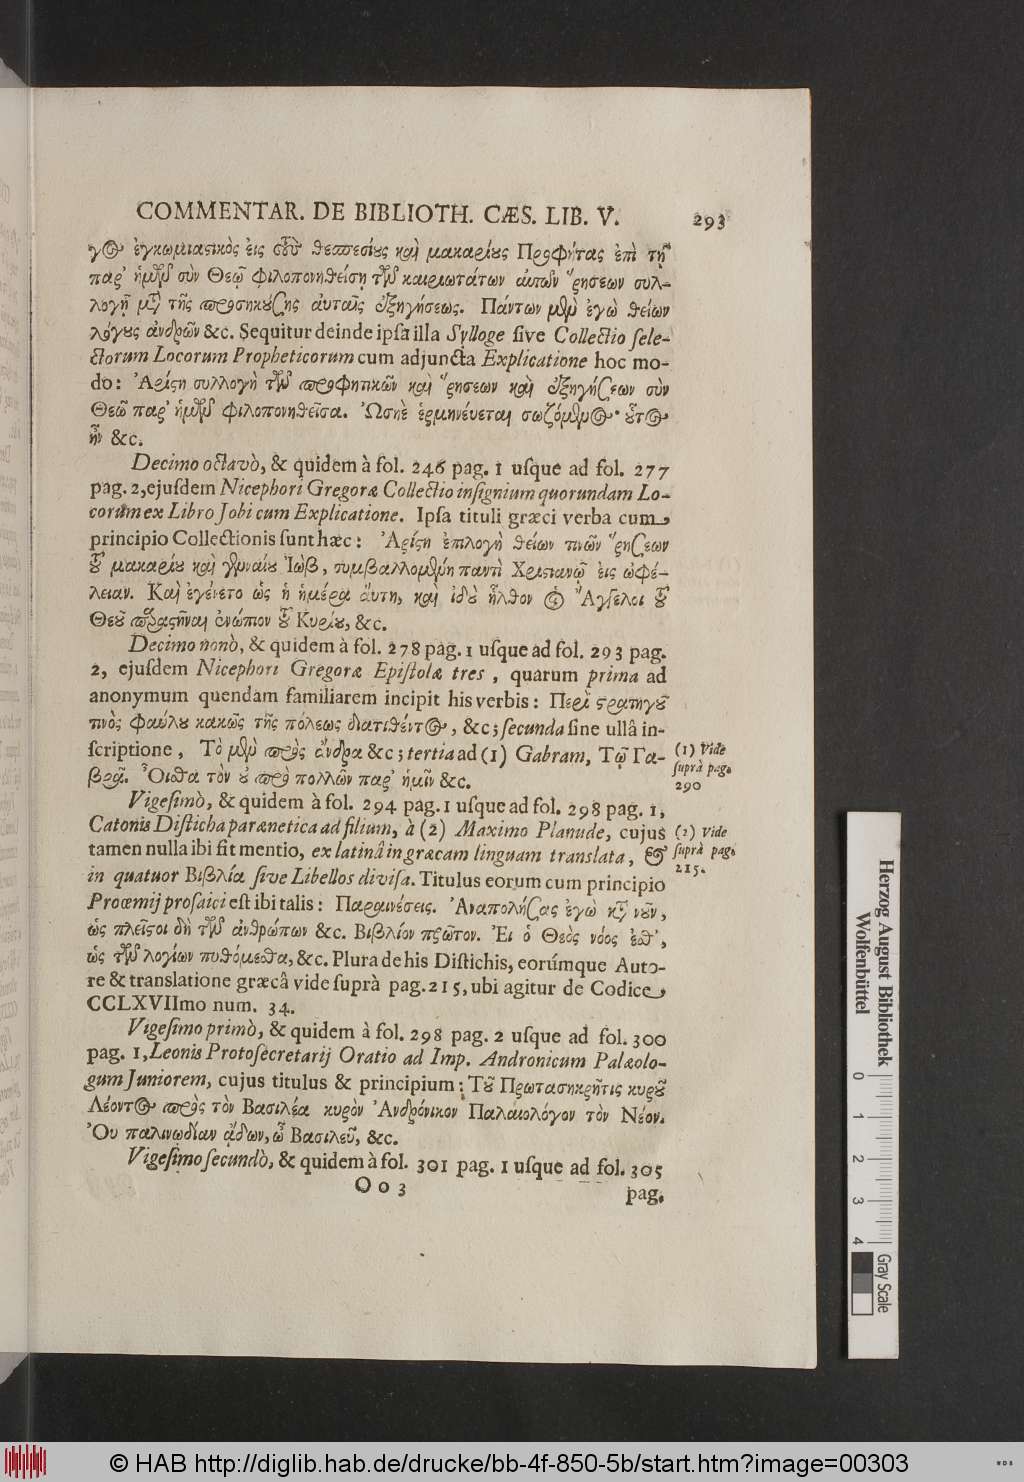 COMMENTAR. DE BIBLIOTH. CÆS. LIB. V. 293
γος ἐγκωμιαστικὸς ἐις τοὺς θεσπεσίους καὶ μακαρίους Προφήτας ἐπὶ τῇ
παρ' ἡμῶν σὺν Θεῷ φιλοπονηθείσῃ τῶν καιριωτάτων αὐτῶν ῥήσεων συλ-
λογῇ μετὰ τῆς προσηκούσης ἀυταῖς ἐξηγήσεως. Πάντων μὲν ἐγὼ θείων
λόγους ἀνδρῶν &c. Sequitur deinde ipſa illa Sylloge ſive Collectio ſele-
ctorum Locorum Propheticorum cum adjuncta Explicatione hoc mo-
do: Ἀρίστη συλλογὴ τῶν προφητικῶν καὶ ῥήσεων καὶ ἐξηγήσεων σὺν
Θεῷ παρ' ἡμῶν φιλοπονηθεῖσα. Ὠσηὲ ἑρμηνέυεται σωζόμενος· οὗτος
ἦν &c.
Decimo octavò, & quidem à fol. 246 pag. 1 uſque ad fol. 277
pag. 2, ejuſdem Nicephori Gregoræ Collectio inſignium quorundam Lo-
corum ex Libro Jobi cum Explicatione. Ipſa tituli græci verba cum
principio Collectionis ſunt hæc: Ἀρίστη ἐπιλογὴ θείων τινῶν ῥήσεων
τοῦ μακαρίου καὶ γενναίου Ἰὼβ, συμβαλλομένη παντὶ Χριστιανῷ ἐις ὠφέ-
λειαν. Καὶ ἐγένετο ὡς ἡ ἡμέρα ἅυτη, καὶ ἰδοὺ ἦλθον οἱ Ἄγγελοι τοῦ
Θεοῦ παραστῆναι ἐνώπιον τοῦ Κυρίου, &c.
Decimo nonò, & quidem à fol. 278 pag. 1 uſque ad fol. 293 pag.
2, ejuſdem Nicephori Gregoræ Epiſtolæ tres, quarum prima ad
anonymum quendam familiarem incipit his verbis: Περὶ στρατηγοῦ
τινὸς φαύλου κακῶς τῆς πόλεως διατιθέντος, &c; ſecunda ſine ullâ in-
ſcriptione, Τὸ μὲν πρὸς ἄνδρα &c; tertia ad (1) Gabram, Τῷ Γα-
βρᾷ. Οἶσθα τὸν οὐ πρὸ πολλῶν παρ' ἡμῖν &c.
(1) Vide
ſuprà pag.
290
Vigeſimò, & quidem à fol. 294 pag. 1 uſque ad fol. 298 pag. 1,
Catonis Diſticha parænetica ad filium, à (2) Maximo Planude, cujus
tamen nulla ibi fit mentio, ex latinâ in græcam linguam translata, &
in quatuor Βιβλία ſive Libellos diviſa. Titulus eorum cum principio
(2) Vide
ſuprà pag.
215.
Proœmij proſaici eſt ibi talis: Παραινέσεις. Ἀναπολήσας ἐγὼ κατὰ νοῦν,
ὡς πλεῖστοι δὴ τῶν ἀνθρώπων &c. Βιβλίον πρῶτον. Ἐι ὁ Θεὸς νόος ἐσθ',
ὡς τῶν λογίων πυθόμεσθα, &c. Plura de his Diſtichis, eorúmque Auto-
re & translatione græcâ vide ſuprà pag. 215, ubi agitur de Codice
CCLXVIImo num. 34.
Vigeſimo primò, & quidem à fol. 298 pag. 2 uſque ad fol. 300
pag. 1, Leonis Protoſecretarij Oratio ad Imp. Andronicum Palæolo-
gum Juniorem, cujus titulus & principium: Τοῦ Πρωτασηκρῆτις κυροῦ
Λέοντος πρὸς τὸν Βασιλέα κυρὸν Ἀνδρόνικον Παλαιολόγον τὸν Νέον.
Ὀυ παλινῳδίαν ᾄδων, ὦ Βασιλεῦ, &c.
Vigeſimo ſecundò, & quidem à fol. 301 pag. 1 uſque ad fol. 305
O o 3 pag.
Herzog August Bibliothek
Wolfenbüttel
0 1 2 3 4
Gray Scale
© HAB http://diglib.hab.de/drucke/bb-4f-850-5b/start.htm?image=00303